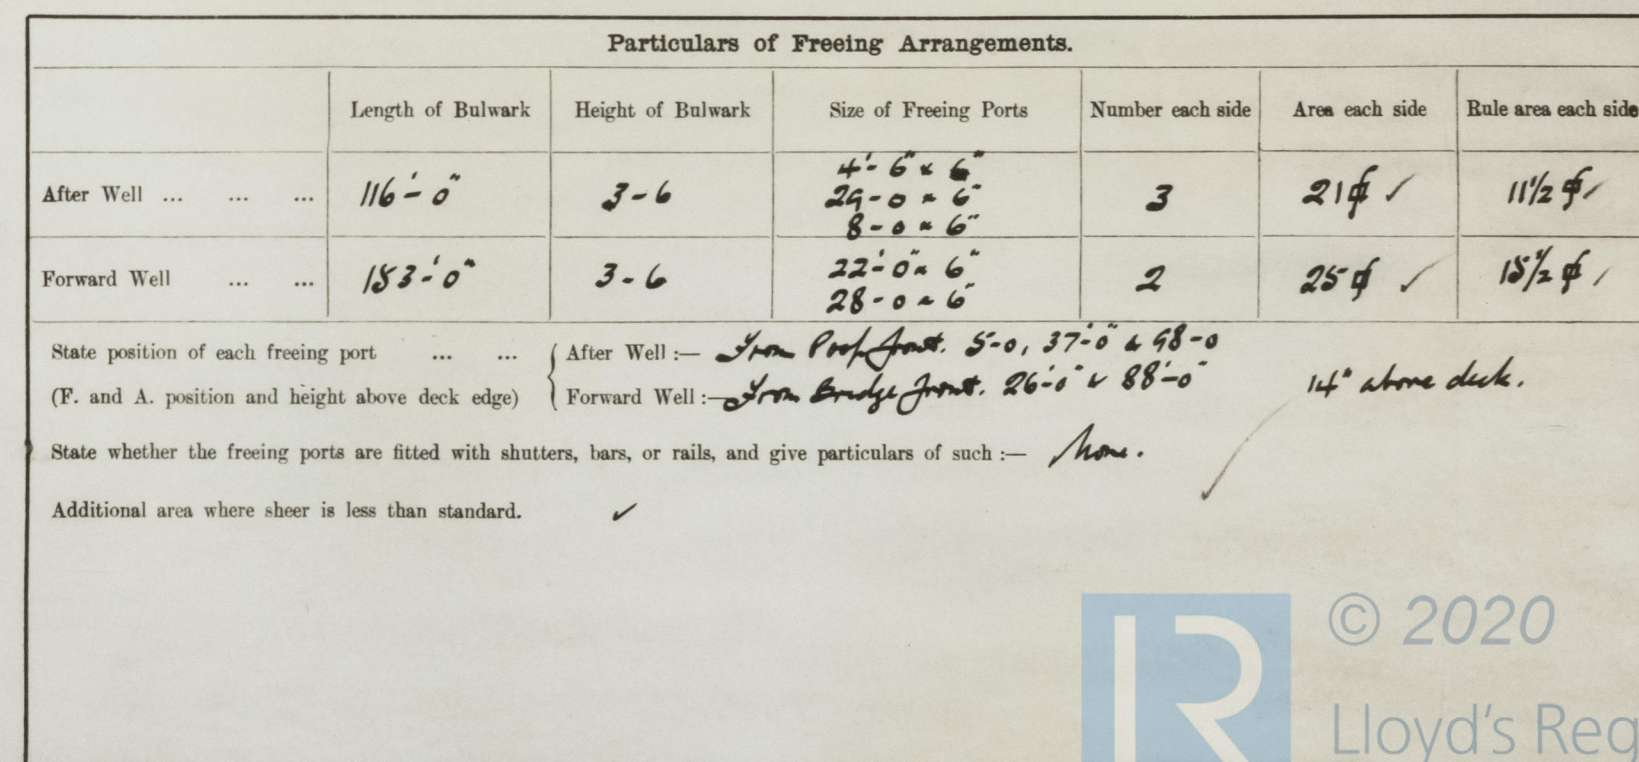 Particulars of Freeing Arrangements.
Length of Bulwark Height of Bulwark Size of Freeing Ports Number each side Area each side Rule area each side
4'-6" × 6"
After Well ... ... ... 116'-0" 3-6 29-0 × 6" 3 21 ✓ 11 1/2
8-0 × 6"
22'-0" × 6"
Forward Well ... ... 153'-0" 3-6 2 25 ✓ 15 1/2
28-0 × 6"
State position of each freeing port ... ... After Well :— From Poop front. 5-0, 37'-0" & 98-0
(F. and A. position and height above deck edge) Forward Well :— From Bridge front. 26'-0" & 88'-0" 14" above deck.
State whether the freeing ports are fitted with shutters, bars, or rails, and give particulars of such :— None.
Additional area where sheer is less than standard. ✓
© 2020
Lloyd's Reg